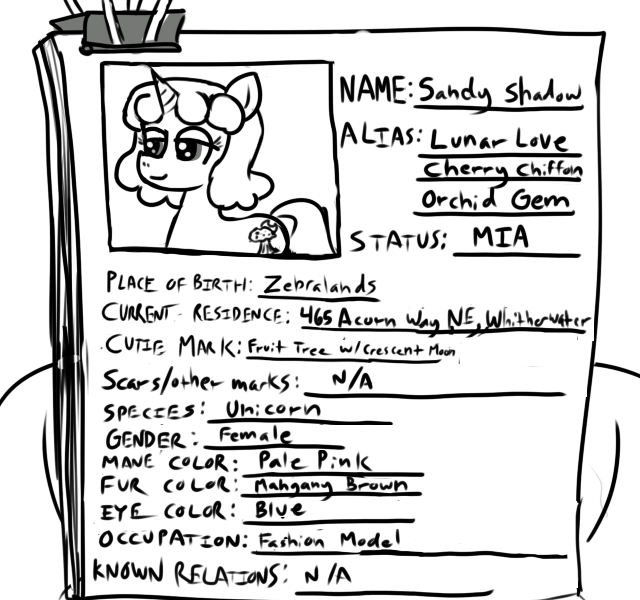 NAME: Sandy Shadow
ALIAS: Lunar Love
Cherry Chiffon
Orchid Gem
STATUS: MIA
PLACE OF BIRTH: Zebralands
CURRENT RESIDENCE: 465 Acorn Way NE, Whitherwater
CUTIE MARK: Fruit Tree w/Crescent Moon
Scars/other marks: N/A
SPECIES: Unicorn
GENDER: Female
MANE COLOR: Pale Pink
FUR COLOR: Mahgany Brown
EYE COLOR: Blue
OCCUPATION: Fashion Model
KNOWN RELATIONS: N/A